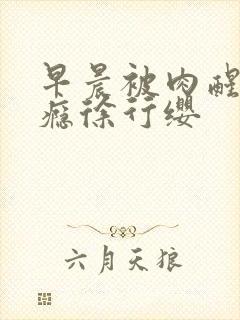 早晨被肉醒
瘾徐行缨
六月天狼